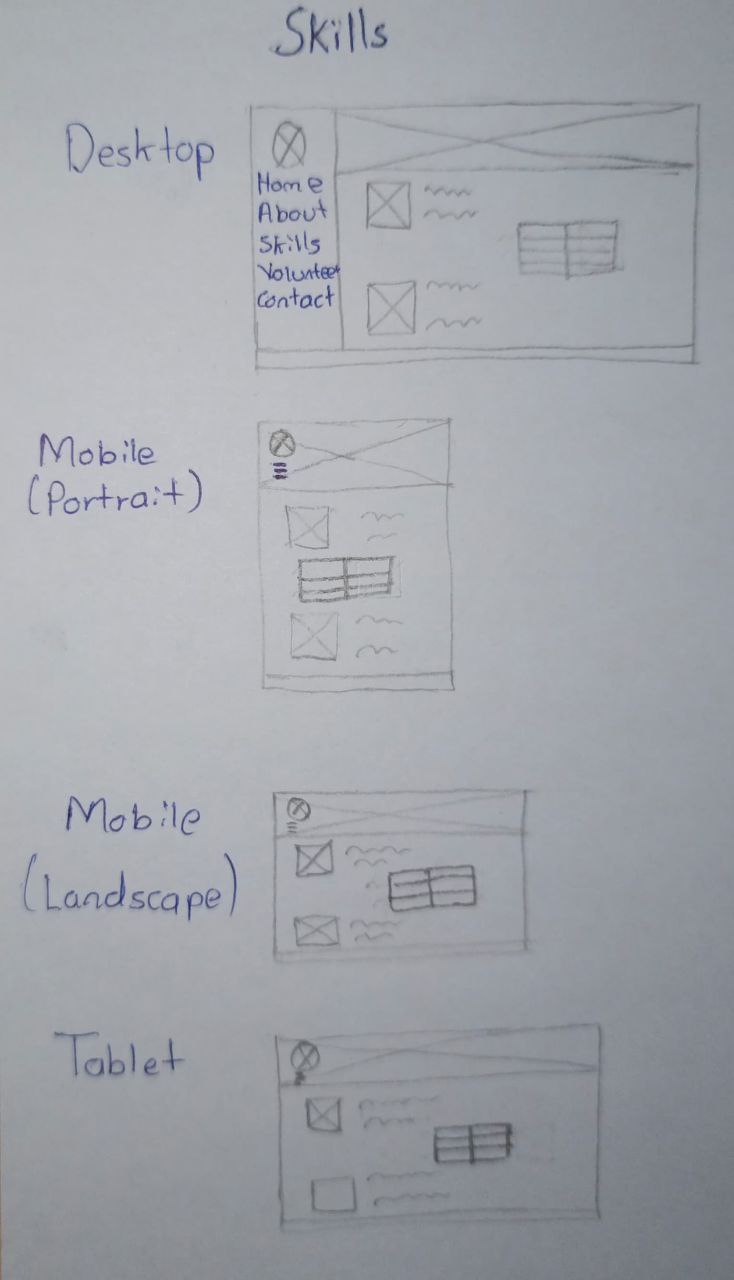 Skills
Desktop
Home
About
Skills
Volunteer
Contact
Mobile
(Portrait)
Mobile
(Landscape)
Tablet